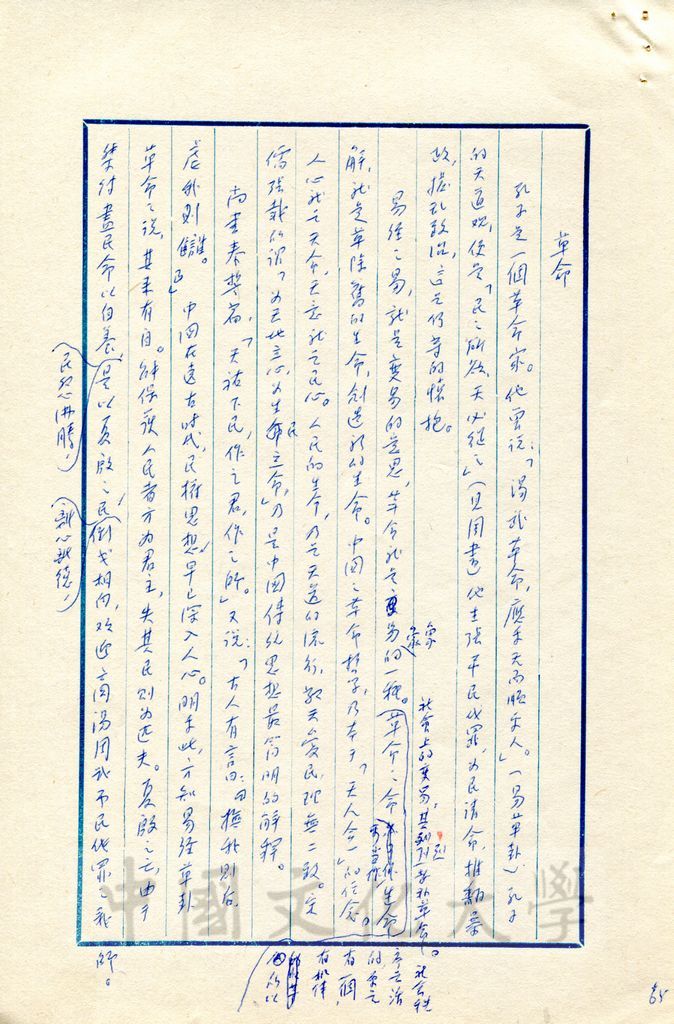 革命
孔子是一個革命家。他曾說:「湯武革命,應乎天而順乎人。」(易革卦)孔子
的天道觀,便是「民之所欲,天必從之」(見周書)他主張平民伐罪,為民請命,推翻暴
政,撥亂救世,這是何等的懷抱。
易經之易,就是變易的意思,革命就是變易的一種。(革命之命
象
社會上的變易,其劇烈者為革命。社會
生命
解,就是革除舊的生命,創造新的生命。中國之革命哲學,乃本乎「天人合一」的信念。
人心就是天命,天意就是民心。人民的生命,乃是天道的流行,敬天愛民,理無二致。宋
儒張載所謂「為天地立心,為生民立命」,乃是中國傳統思想最簡明的解釋。
尚書泰誓篇,「天祐下民,作之君,作之師。」又說:「古人有言曰:『撫我則后,
虐我則讎。』」中國在遠古時代,民權思想,早已深入人心。明乎此,方知易經革卦
革命之說,其來有自。能保護人民者方為君主,失其民則為匹夫。夏殷之亡,由于
桀紂盡民命以自養,是以夏殷之民,倒戈相向,歡迎商湯周武弔民伐罪之義師。
(民怨沸騰,
(離心離德,
有一個
有機體
所以
中國文化大學
65